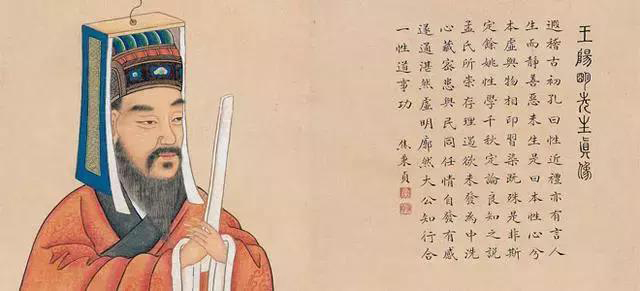 王陽明先生眞像
遐稽古初孔曰性近禮亦有言人
生而靜善惡未生是曰本性心兮
本虛與物相印習染既殊是非斯
定餘姚性學千秋定論良知之說
孟氏所崇存理遏欲未發為中洗
心藏密患與民同任情自發有感
遂通湛然虛明廓然大公知行合
一性道事功
焦秉貞